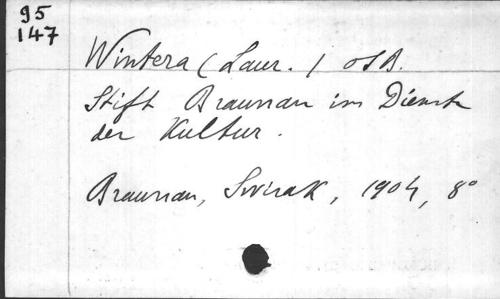 95
147
Wintera (Laur.) OSB.
Stift Braunau im Dienste
der Kultur.
Braunau, Swirak, 1904, 8°